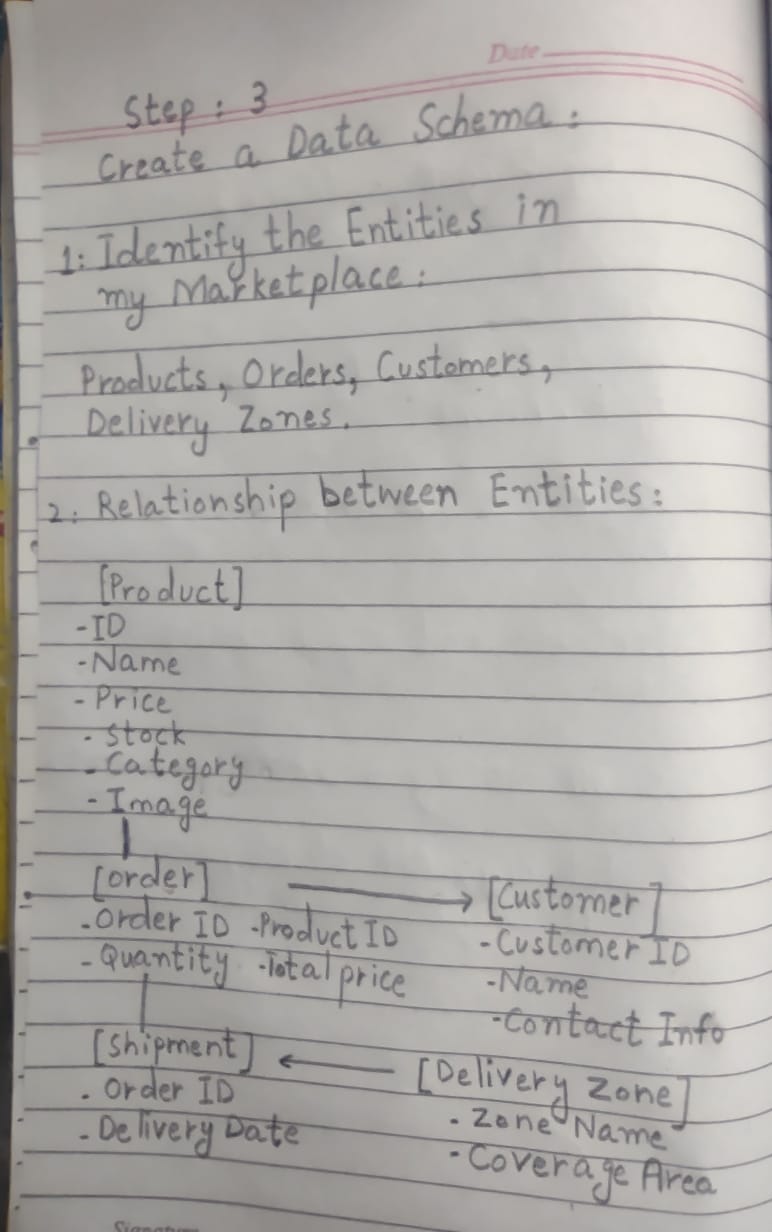 Date
Step : 3
Create a Data Schema :
1: Identify the Entities in
my Marketplace :
Products, Orders, Customers,
Delivery Zones.
2: Relationship between Entities :
[Product]
-ID
-Name
- Price
- Stock
- Category
- Image
[order] → [Customer]
-Order ID -Product ID
- Quantity -Total price
-Customer ID
-Name
-Contact Info
[Shipment] ← [Delivery Zone]
- Order ID
- Delivery Date
- Zone Name
- Coverage Area